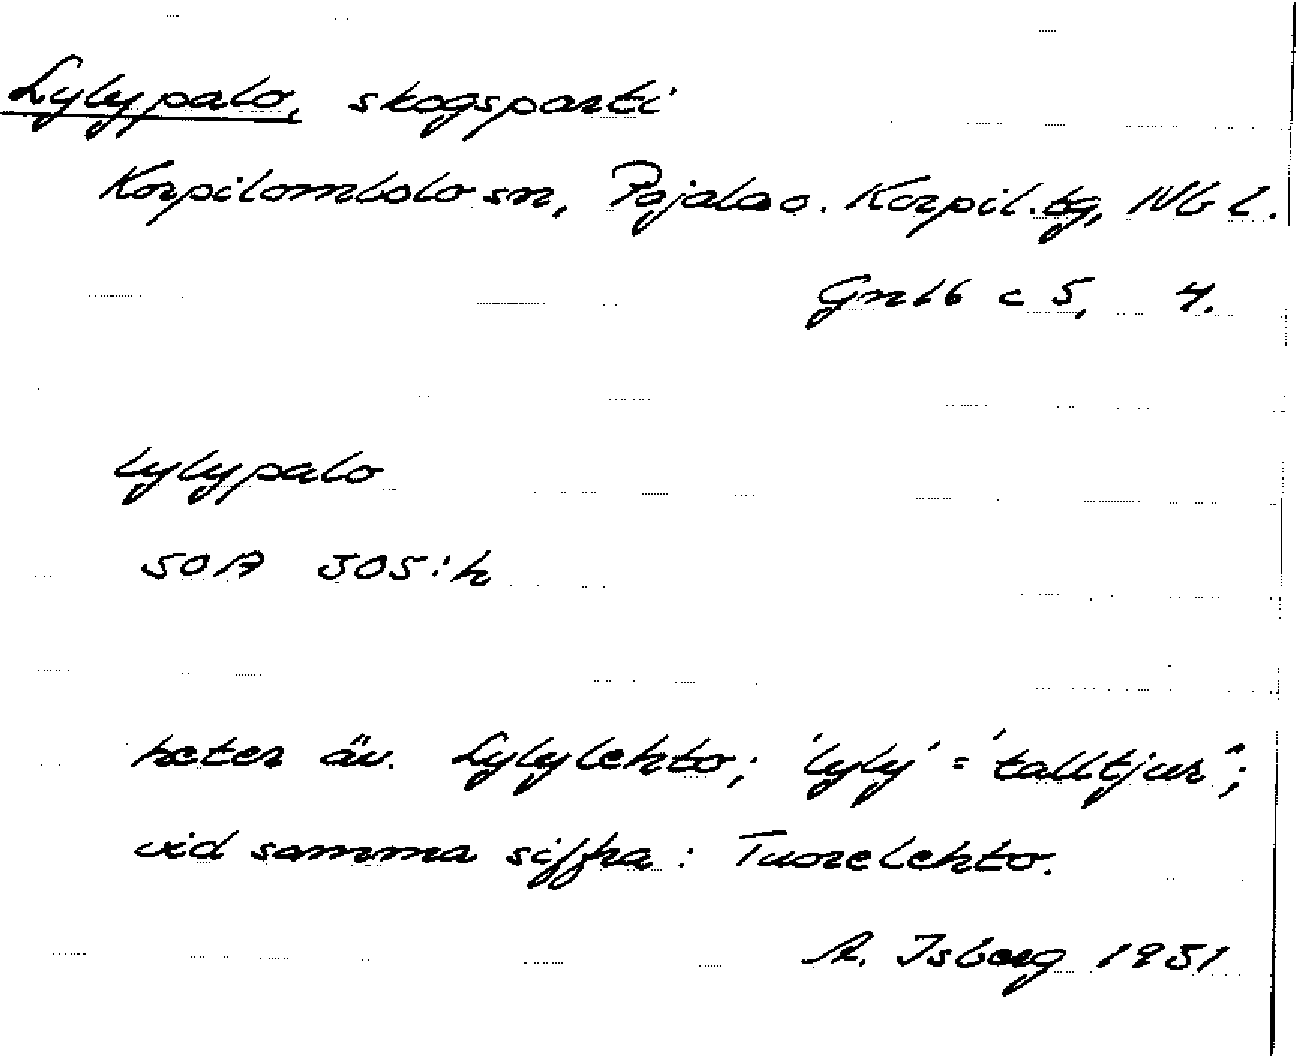 Lylypalo, skogsparti
Korpilombolo sn, Pajala o. Korpil. tg, Nb l.
Gnlb c 5, 4.
lylypalo
SOA 305:h
heter äv. Lylylehto; 'lyly' = 'talltjur';
vid samma siffra: Tuorelehto.
A. Isberg 1931